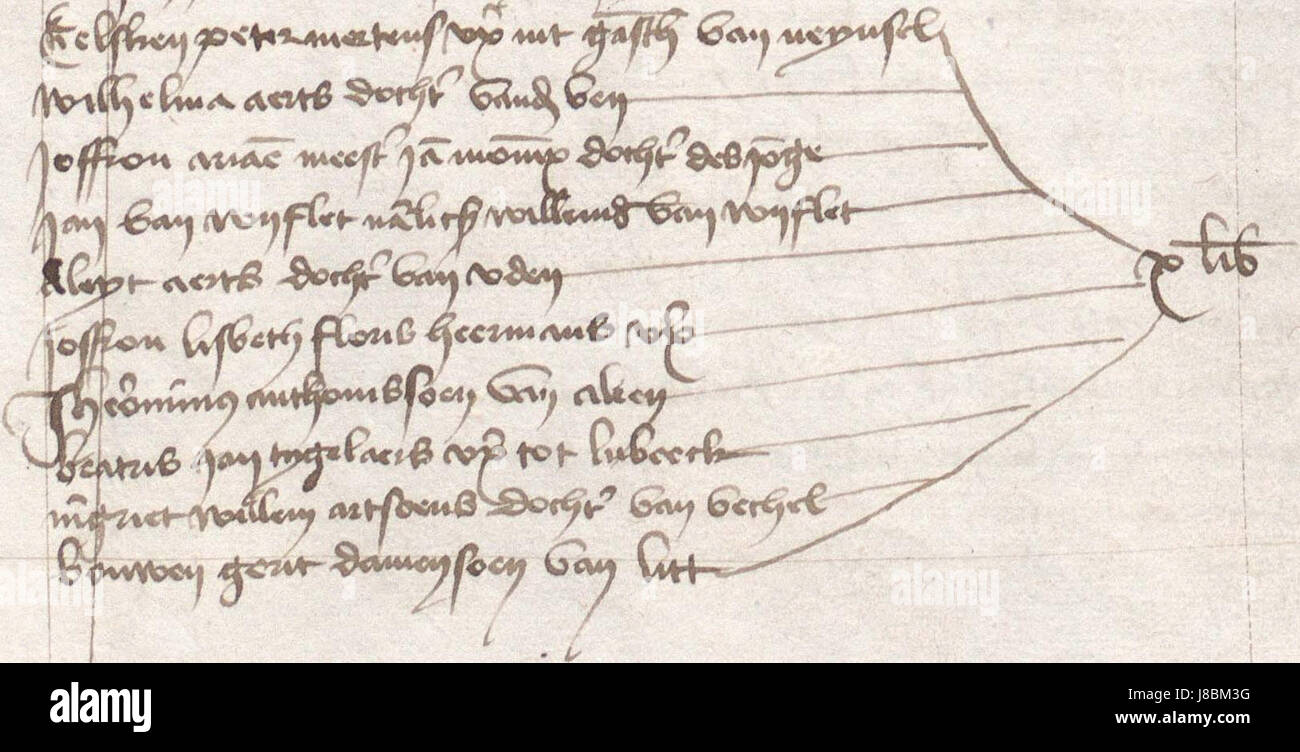 Eelsken peter mertens ux uut gasth van neynsel
wilhelma aerts docht vand ven
Joffrou ariae meest Ja momp docht des joge
Jan van wyflet willemd van wyflet
Aleyt aerts docht van uden
Joffrou lisbeth floris heermans ux
Jheronimus anthonissoen van aken
beatris jan tygelaers ux tot lubeeck
mgriet willem artsoens docht van vechel
bouwen gerit damensoen van litt
x lib
alamy
Image ID: J8BM3G
www.alamy.com